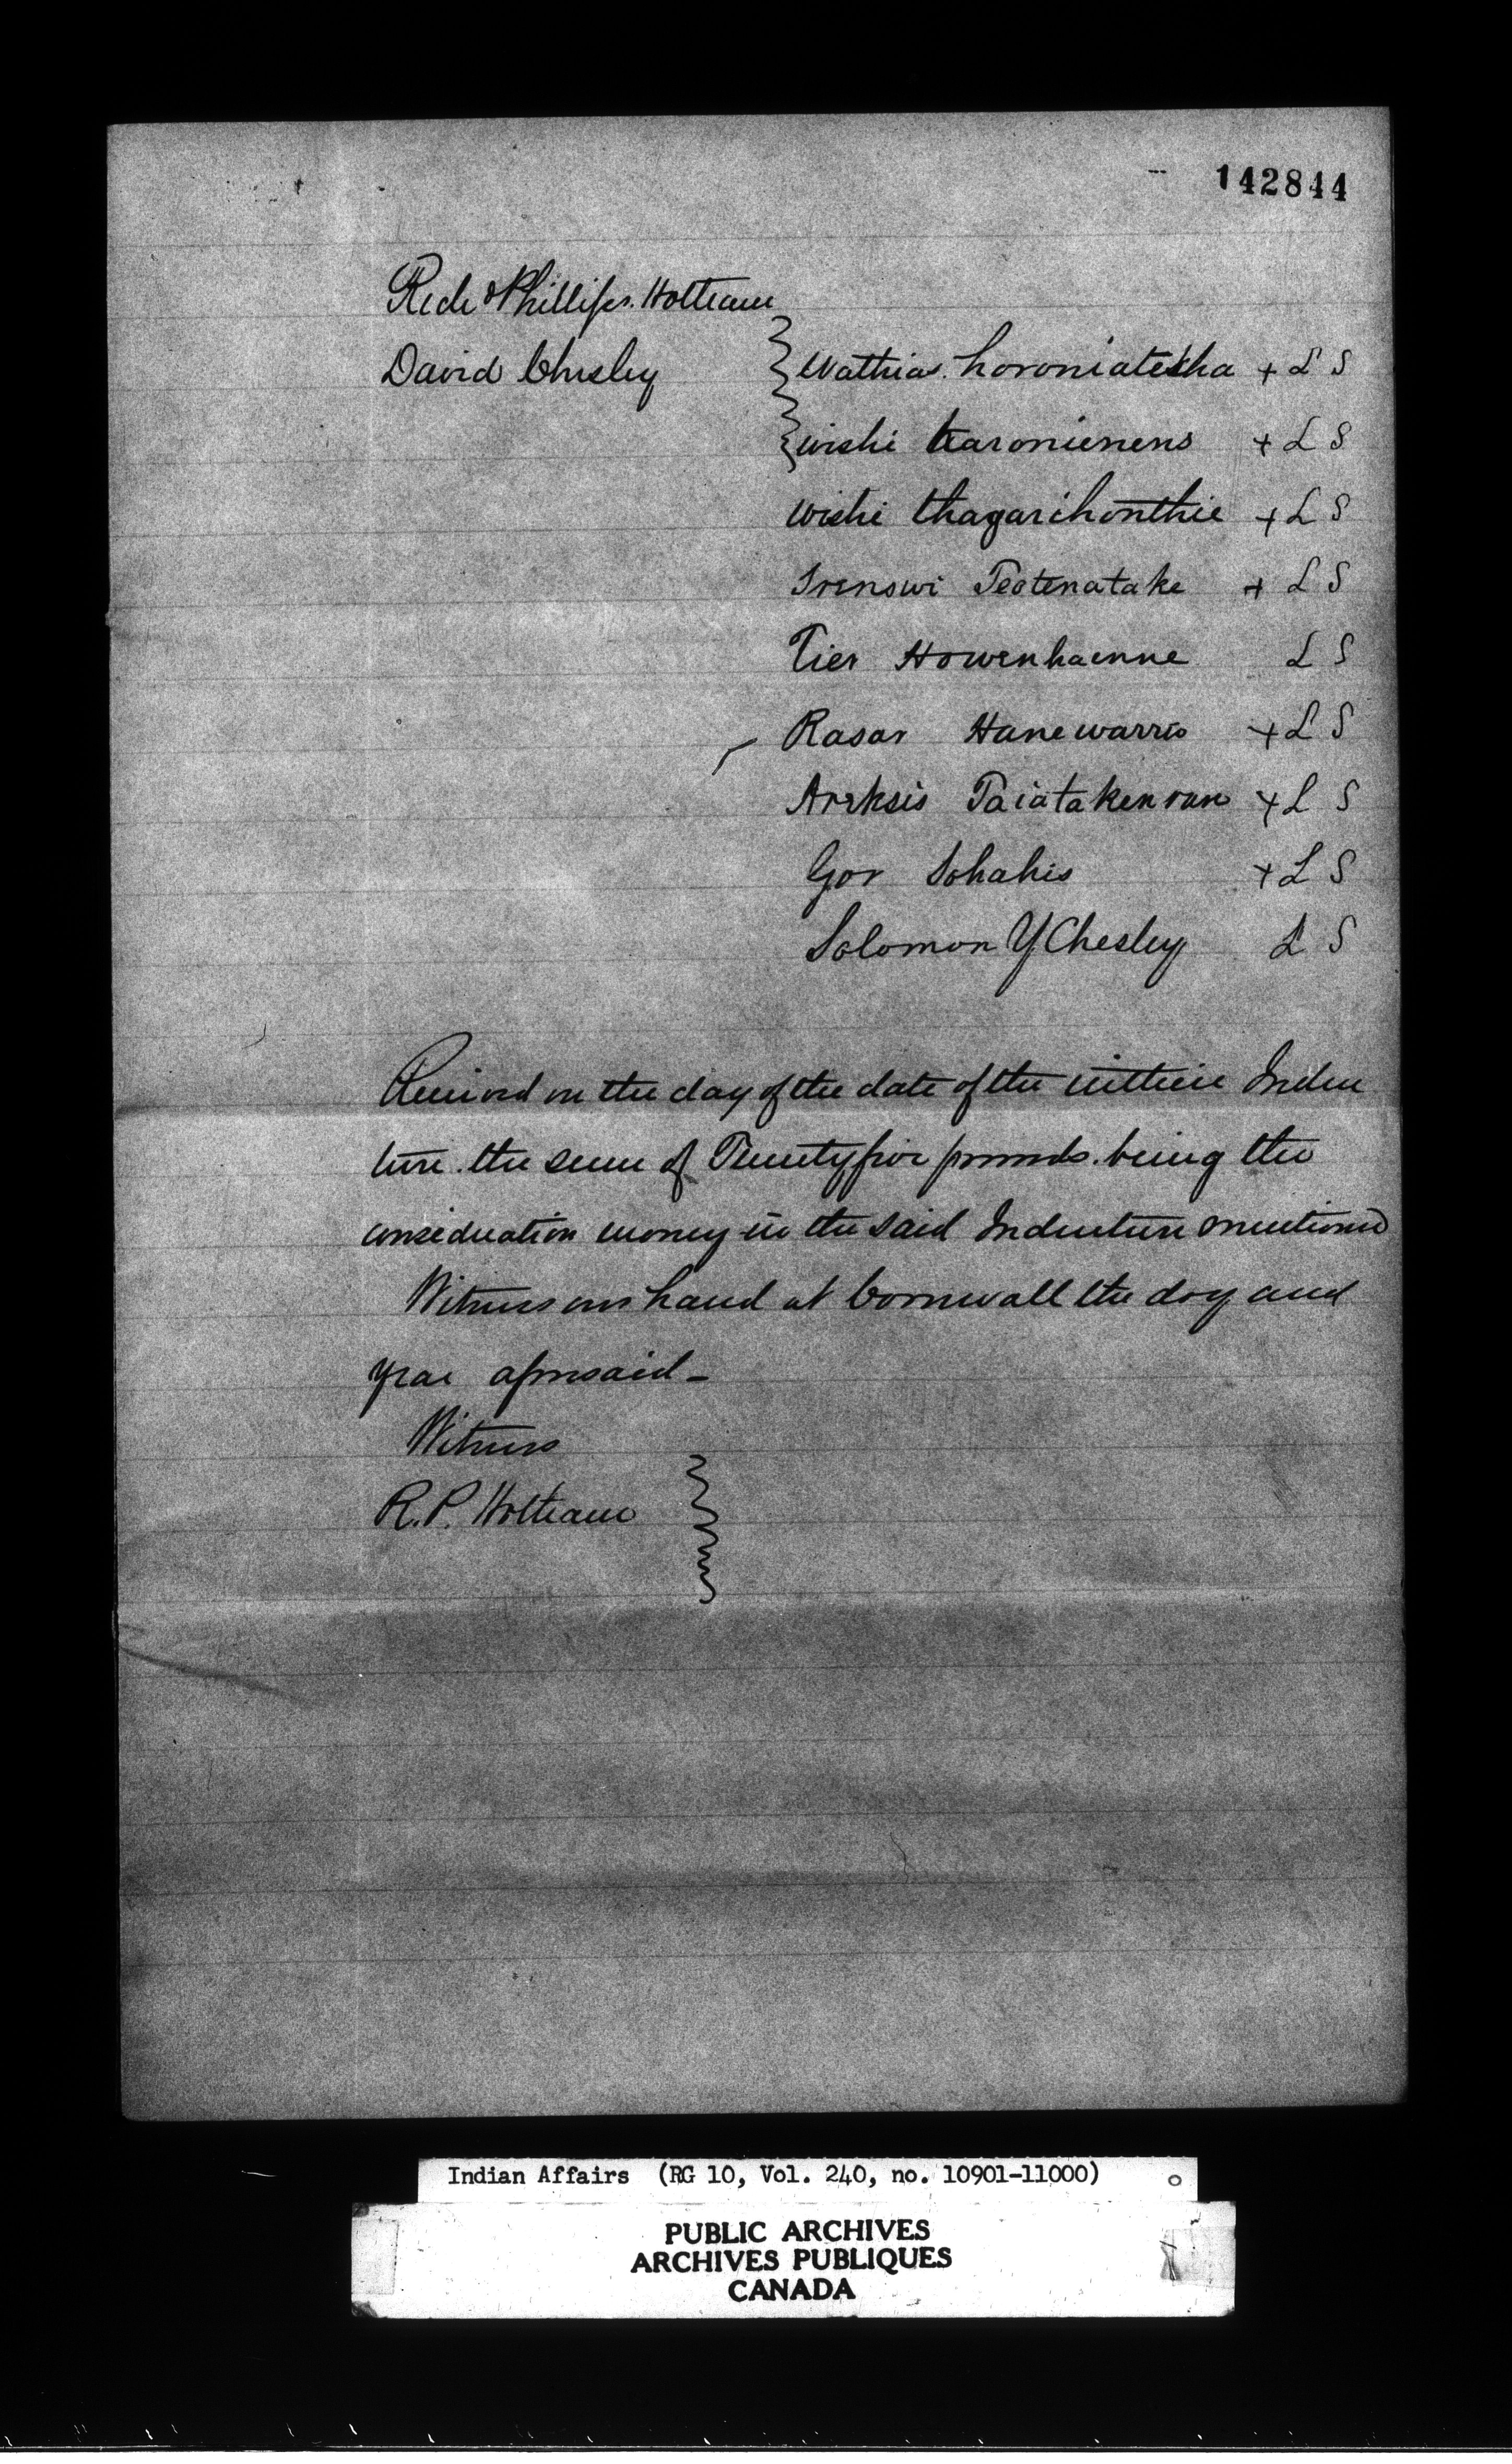 142844
Rede Phillips. Holteaue
David Chesley
Wathias. horoniatekha + L S
wishi karonienens + L S
wishi thagarihonthie + L S
Irenswi Teotenatake + L S
Tier Howenhaenne L S
Rasar Hanewarris + L S
Areksis Taiatakenran + L S
Gor Sohahis + L S
Solomon Y Chesley L S
Received on the day of the date of the within Inden
ture. the sum of Twenty five pounds. being the
consideration money in the said Indenture mentioned
Witness our hand at Cornwall the day and
year aforesaid -
Witness
R. P. Holteaue
Indian Affairs (RG 10, Vol. 240, no. 10901-11000)
PUBLIC ARCHIVES
ARCHIVES PUBLIQUES
CANADA